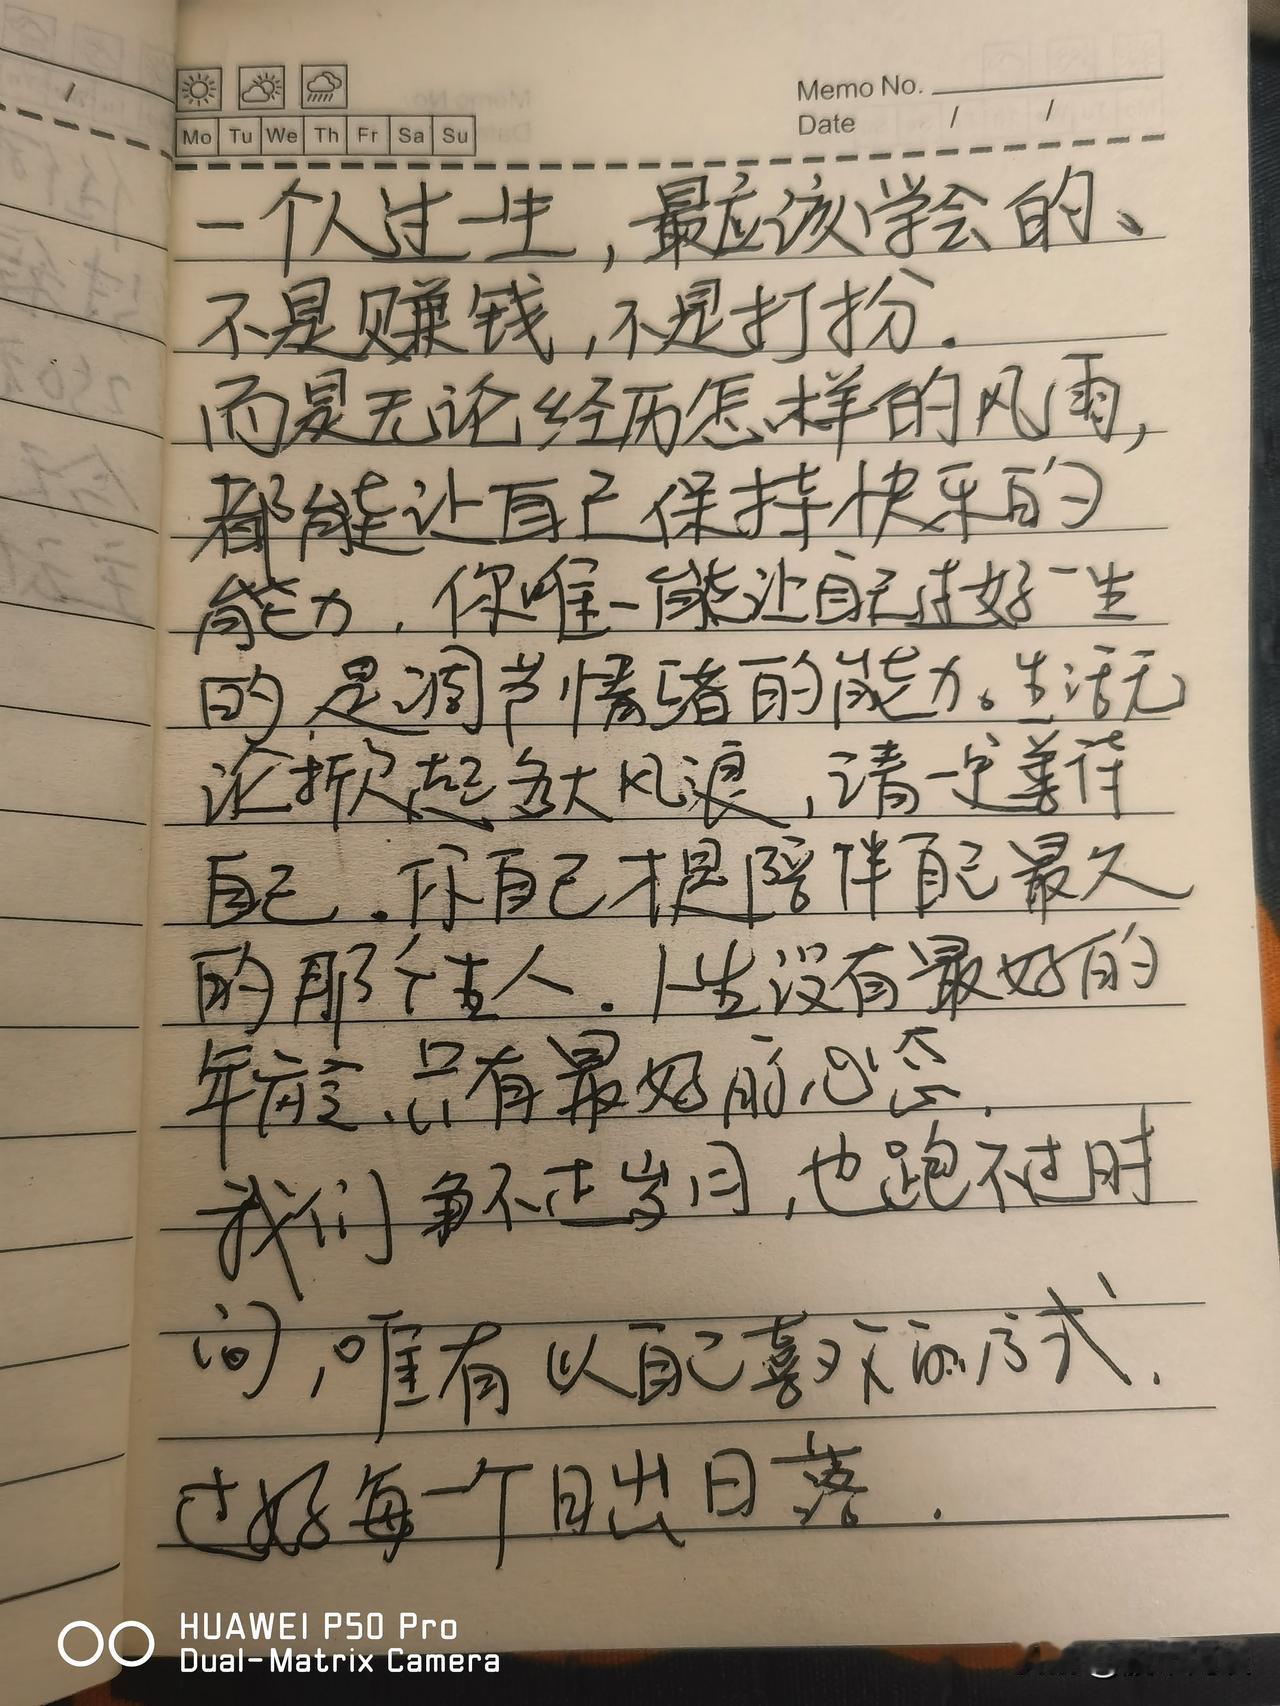 Memo No.
Mo Tu We Th Fr Sa Su
Date / /
一个人过一生,最应该学会的、
不是赚钱,不是打扮.
而是无论经历怎样的风雨,
都能让自己保持快乐的
能力.你唯一能让自己过好一生
的,是调节情绪的能力。生活无
论掀起多大风浪,请一定善待
自己.你自己才是陪伴自己最久
的那个人.人生没有最好的
年龄、只有最好的心态.
我们争不过岁月,也跑不过时
间,唯有以自己喜欢的方式.
过好每一个日出日落.
HUAWEI P50 Pro
Dual-Matrix Camera